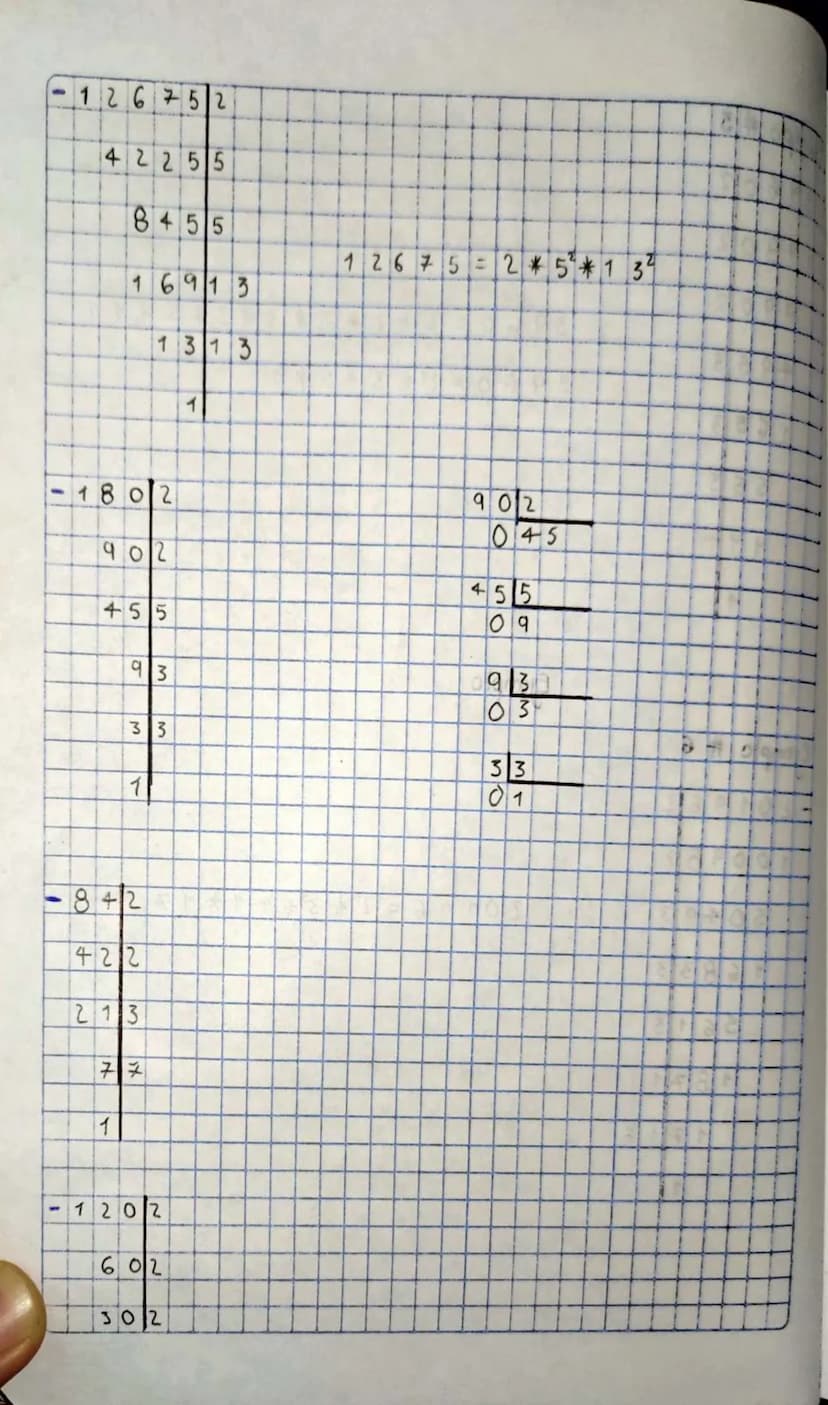 - 1 2 6 7 5 | 2
4 2 2 5 | 5
8 4 5 | 5
1 6 9 | 1 3
1 3 | 1 3
1 |
1 2 6 7 5 = 2 * 5² * 1 3²
- 1 8 0 | 2
9 0 | 2
4 5 | 5
9 | 3
3 | 3
1 |
9 0 | 2
0 | 4 5
4 5 | 5
0 | 9
9 | 3
0 | 3
3 | 3
0 | 1
- 8 4 | 2
4 2 | 2
2 1 | 3
7 | 7
1 |
- 1 2 0 | 2
6 0 | 2
3 0 | 2